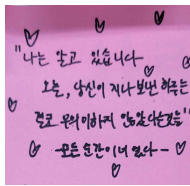 "나는 알고 있습니다
오늘, 당신이 지나보낸 하루는
결코 무의미하지 않았다는것을"
- 모든 순간이 너였다 -